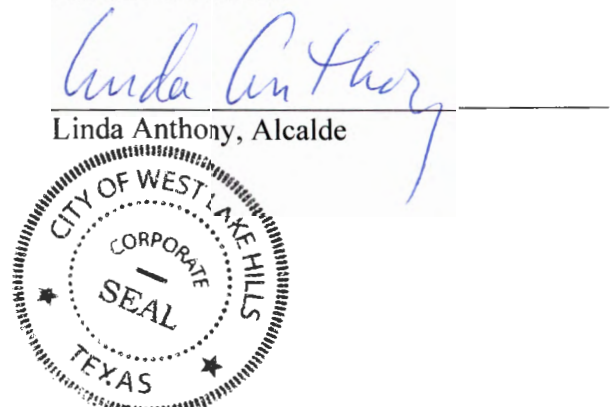 Linda Anthony
Linda Anthony, Alcalde
CITY OF WEST LAKE HILLS
CORPORATE
SEAL
TEXAS